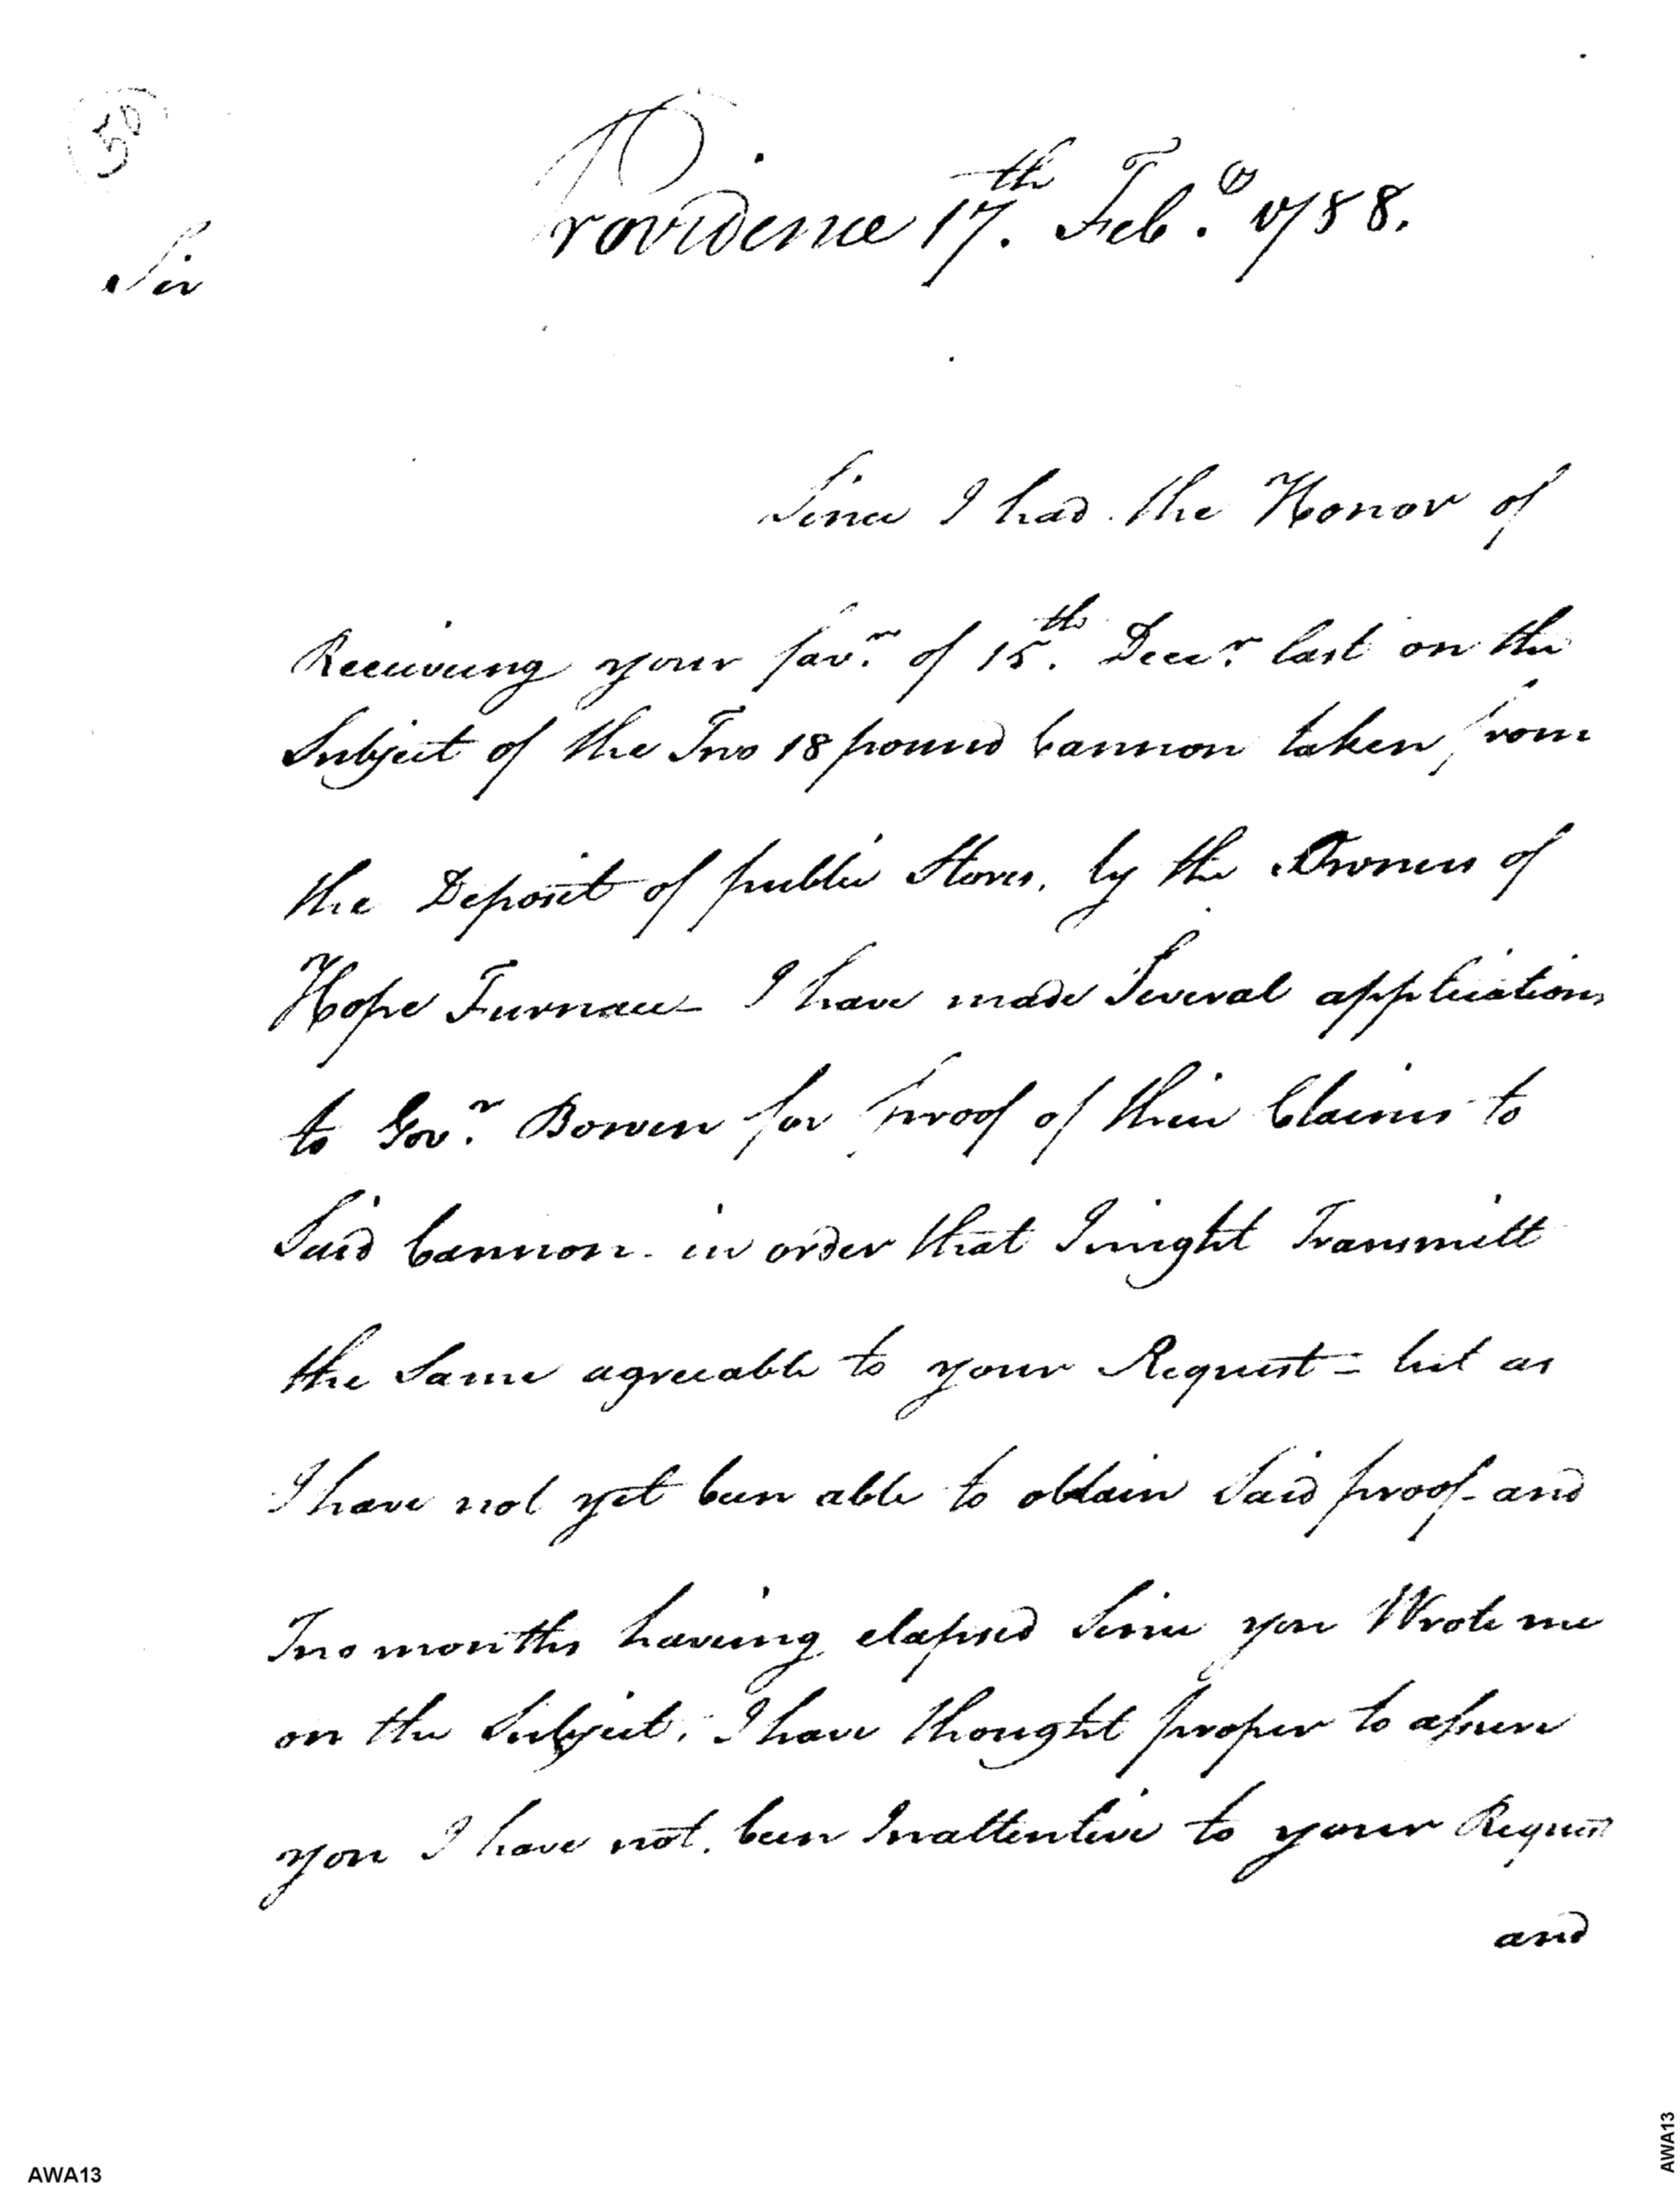 50
Providence 17.th Feb.y 1788.
Sir
Since I had the Honor of
Receiveing your fav.r of 15.th Decr. last on the
Subject of the Two 18 pound Cannon taken from
the Deposit of public Stores, by the Owners of
Hope Furnace - I have made Several applications
to Gov.r Bowen for proof of their Claims to
Said Cannon - in order that I might Transmitt
the Same agreeable to your Request = but as
I have not yet been able to obtain Said proof - and
Two months haveing elapsed Since you Wrote me
on the Subject. I have thought proper to assure
you I have not been Inattentive to your Request
and
AWA13
AWA13